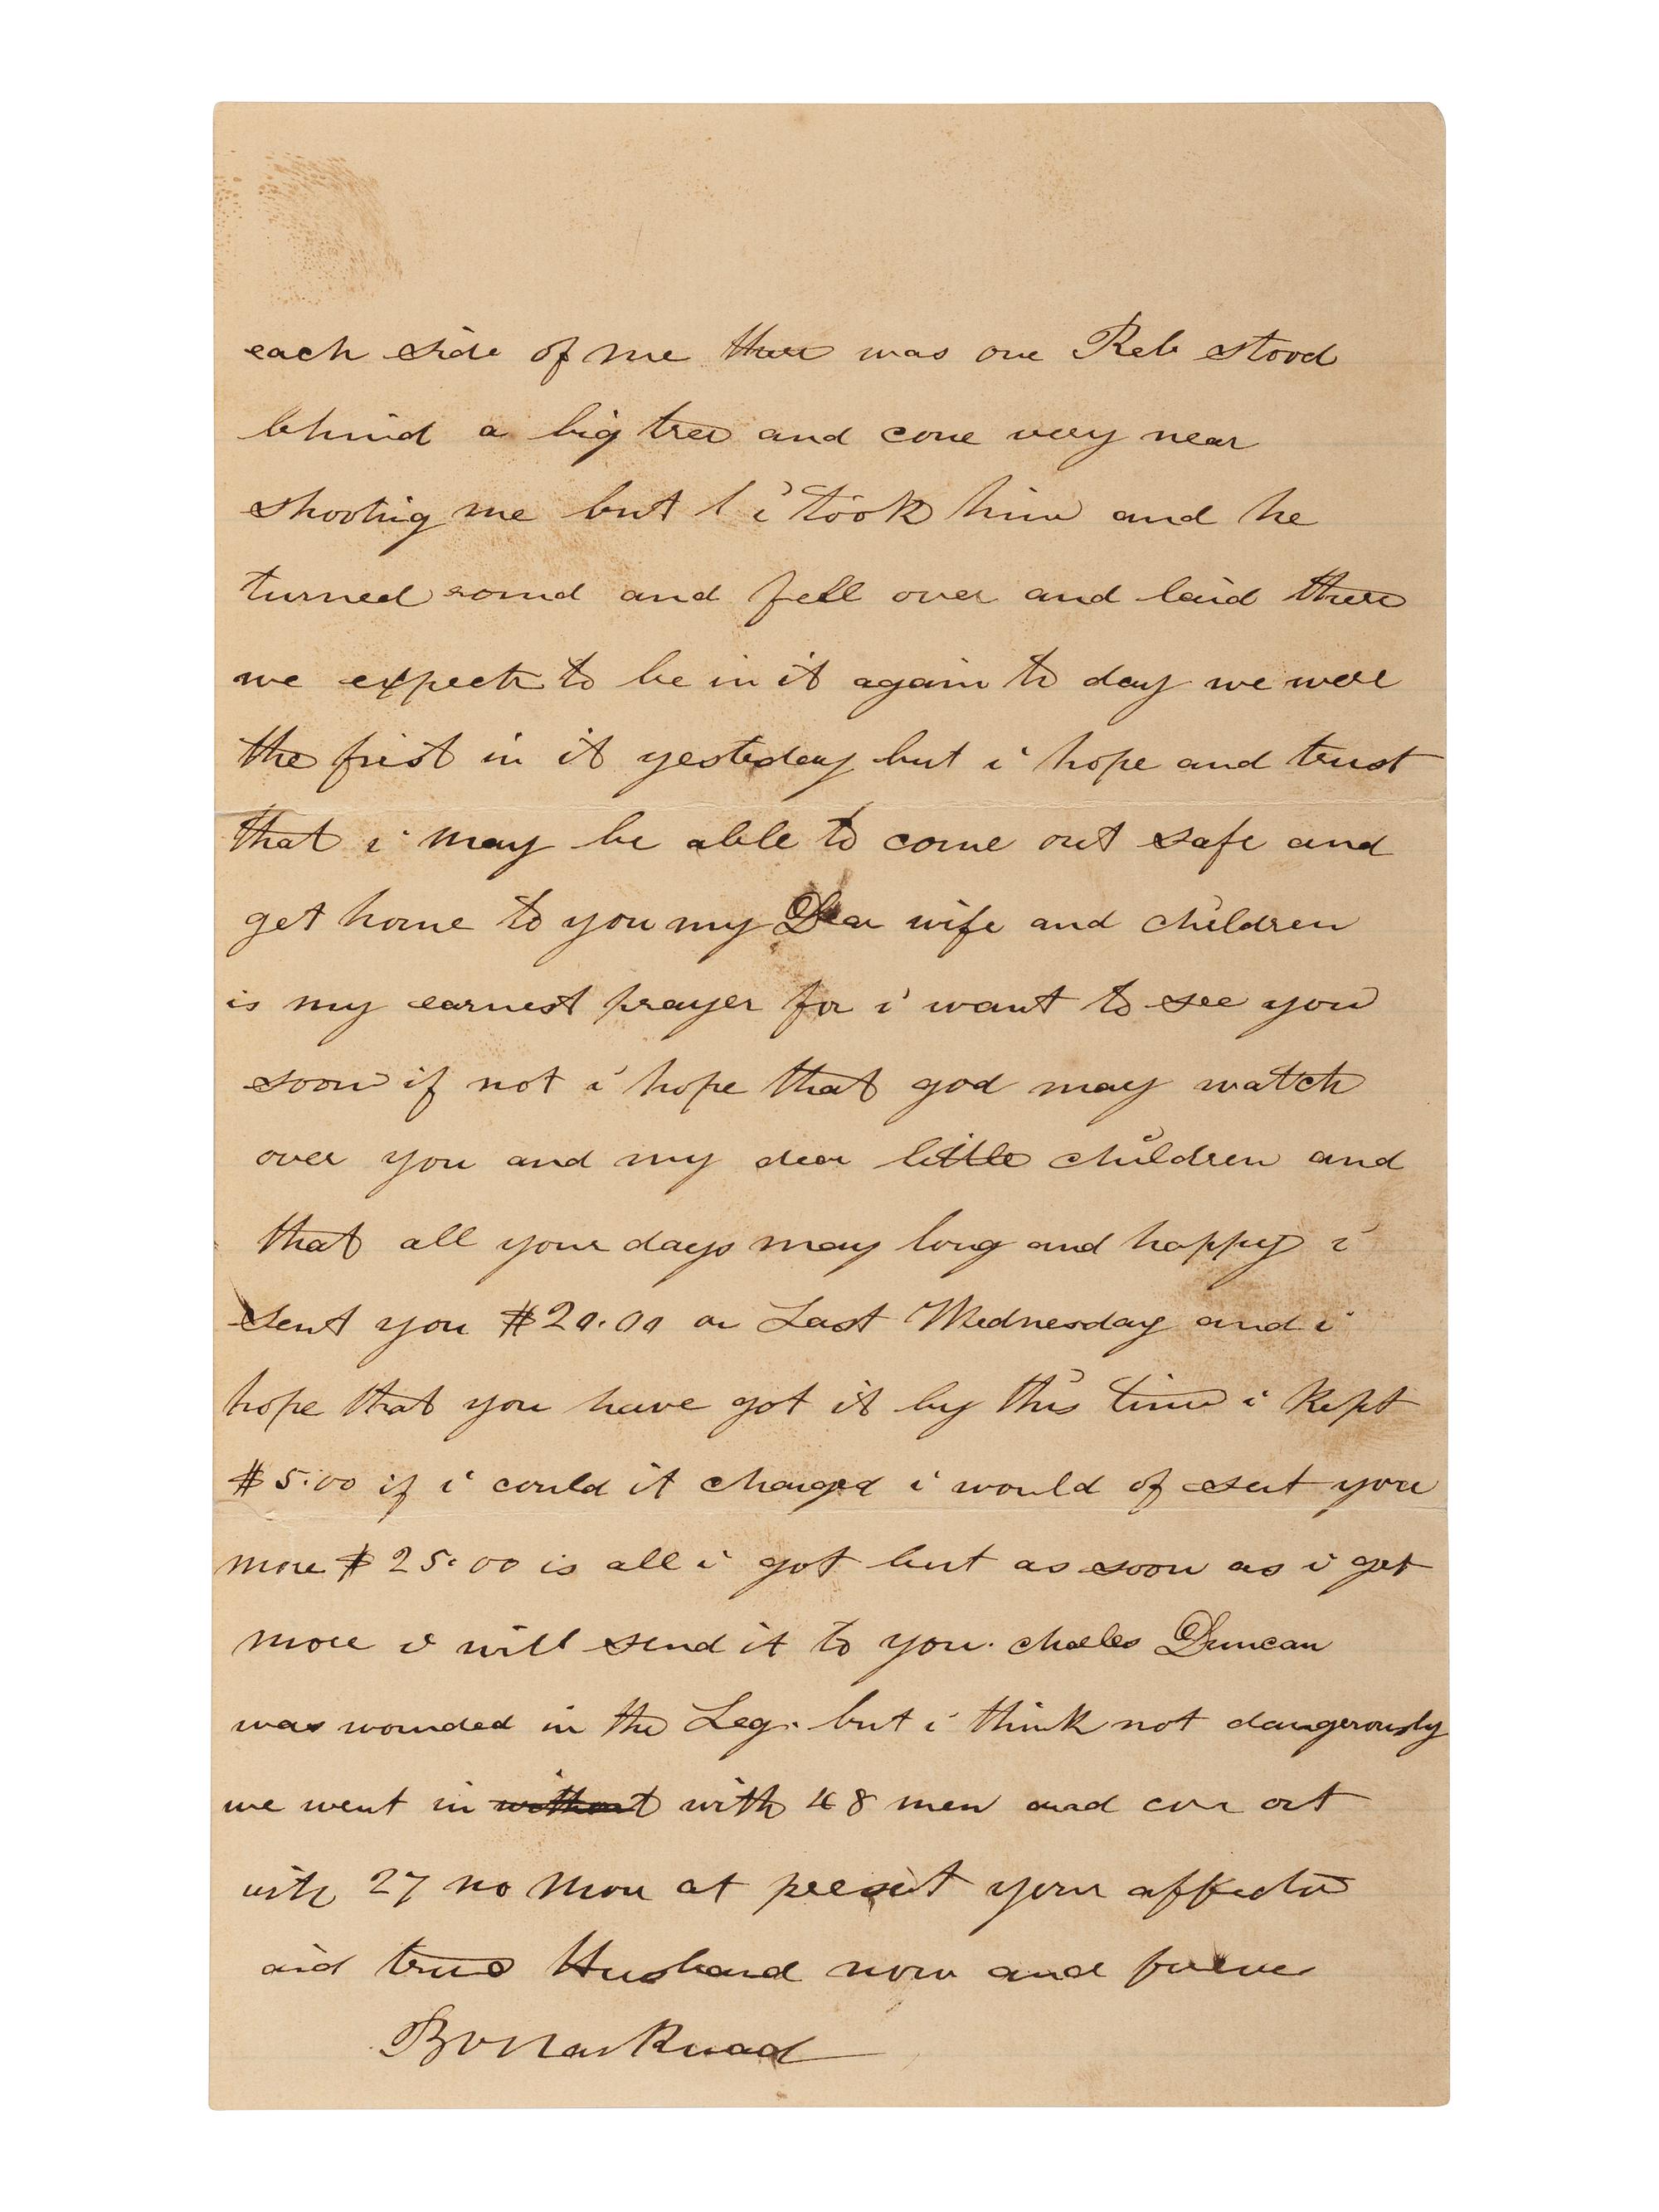 each side of me there was one Reb stood
behind a big tree and come very near
shooting me but i took him and he
turned round and fell over and laid there
we expect to be in it again to day we were
the frist in it yesteday but i hope and trust
that i may be able to come out safe and
get home to you my Dear wife and children
is my earnest prayer for i want to see you
soon if not i hope that god may watch
over you and my dear little children and
that all your days may long and happy i
sent you $20.00 on Last Wednesday and i
hope that you have got it by this time i kept
$5.00 if i could it changed i would of sent you
more $25.00 is all i got but as soon as i get
more i will send it to you. Duncan
was wounded in the Leg. but i think not dangerously
we went in without with 48 men and out
with 27 no more at present your
and true Husband now and